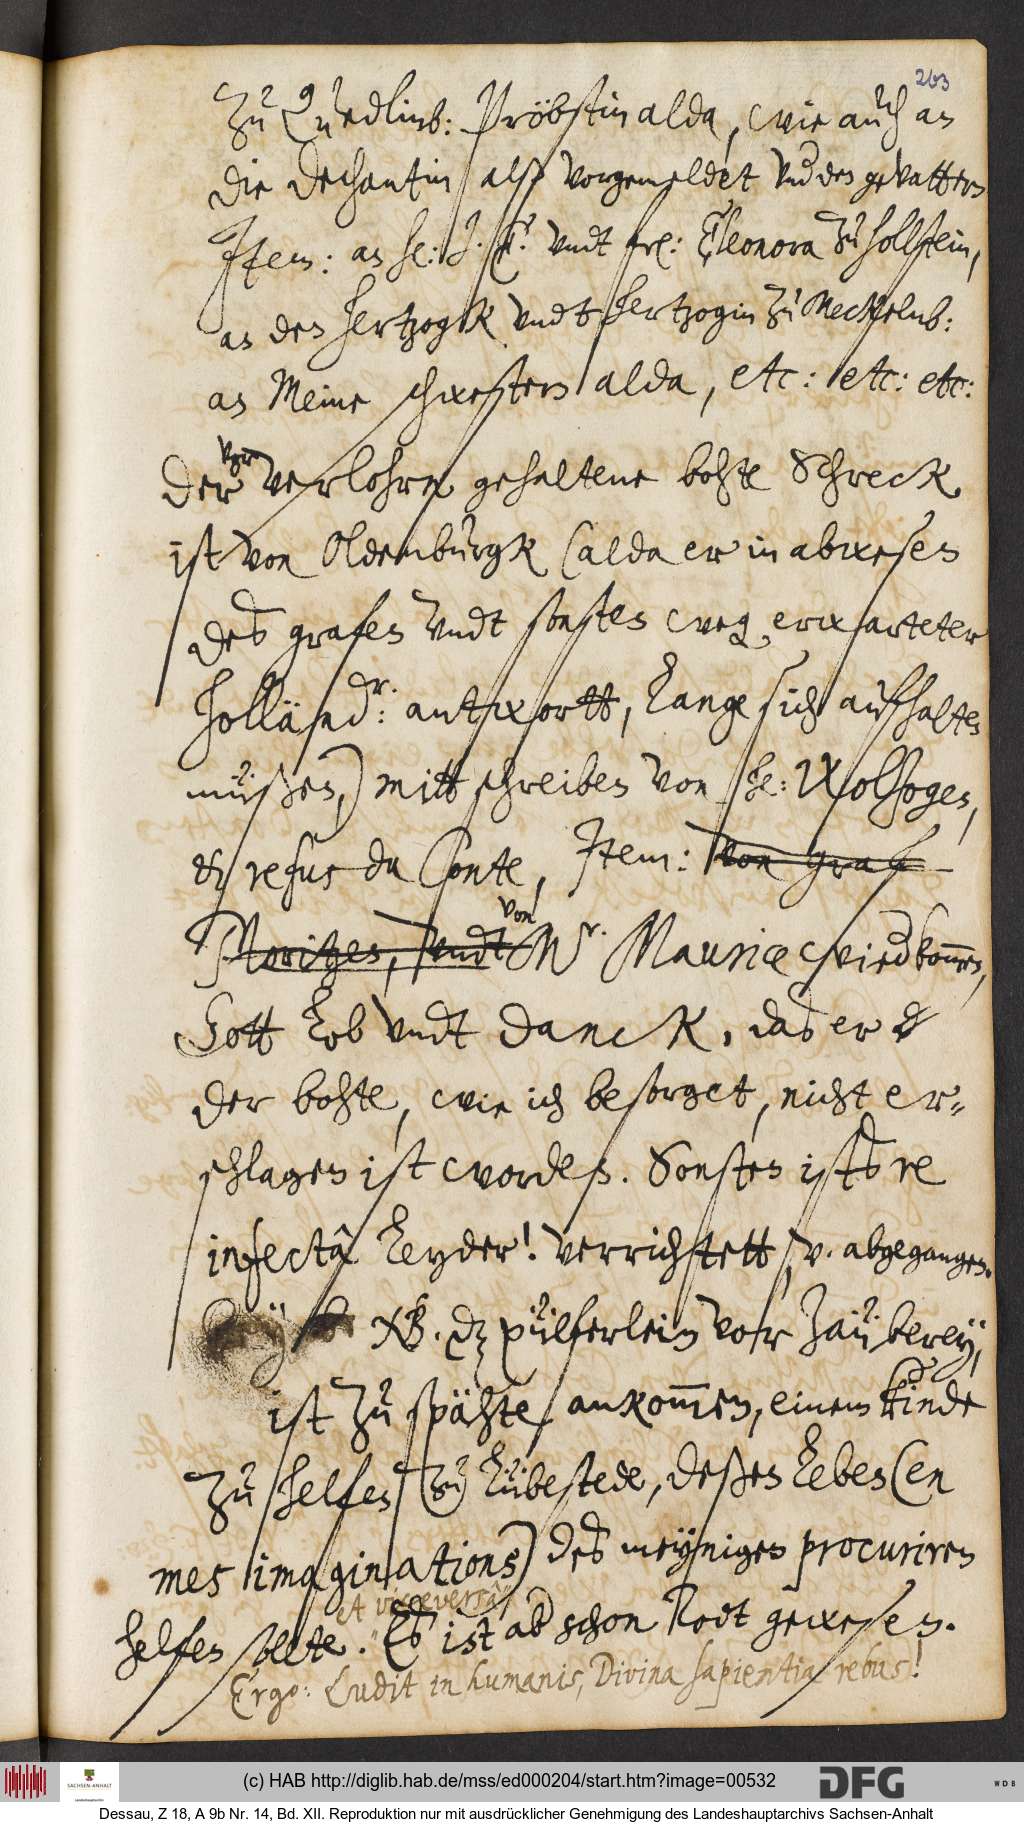 263
Zu Quedlinb: Pröbstin alda, wie auch an
die Dechantin alß vorgemeldet vnd den gevattern
Item: an he: J. C. vndt frl: Eleonora zu hollstein,
an den hertzogk vndt hertzogin zu Mecklenb:
an Meine schwestern alda, etc: etc: etc:
Der vor verlohren gehaltene bohte Schreck
ist von Oldenburgk (alda er in abwesen
des grafen vndt sonsten weg. erwarteter
holländr: antwortt, lange sich aufhalten
müßen,) mitt schreiben von he: Wolzogen,
& refus du Conte, Item: von graf
Moritzen, vndt von Mr. Maurice wiedkommen,
Gott lob vndt danck, das er
der bohte, wie ich besorget, nicht er=
schlagen ist worden. Sonsten ists re
infectâ leyder! verrichtett, v. abgegangen.
NB. dz pülferlein vor Zauberey,
ist zu späht ankommen, einem kinde
zu helfen (zu) Lübestede, deßen leben (en
mes imaginations) des meynigen procuriren
et viceversâ
helfen sollte. Es ist ab schon Todt gewesen.
Ergo: Ludit in humanis, Divina sapientia rebus!
(c) HAB http://diglib.hab.de/mss/ed000204/start.htm?image=00532
SACHSEN-ANHALT
DFG
WDB
Dessau, Z 18, A 9b Nr. 14, Bd. XII. Reproduktion nur mit ausdrücklicher Genehmigung des Landeshauptarchivs Sachsen-Anhalt